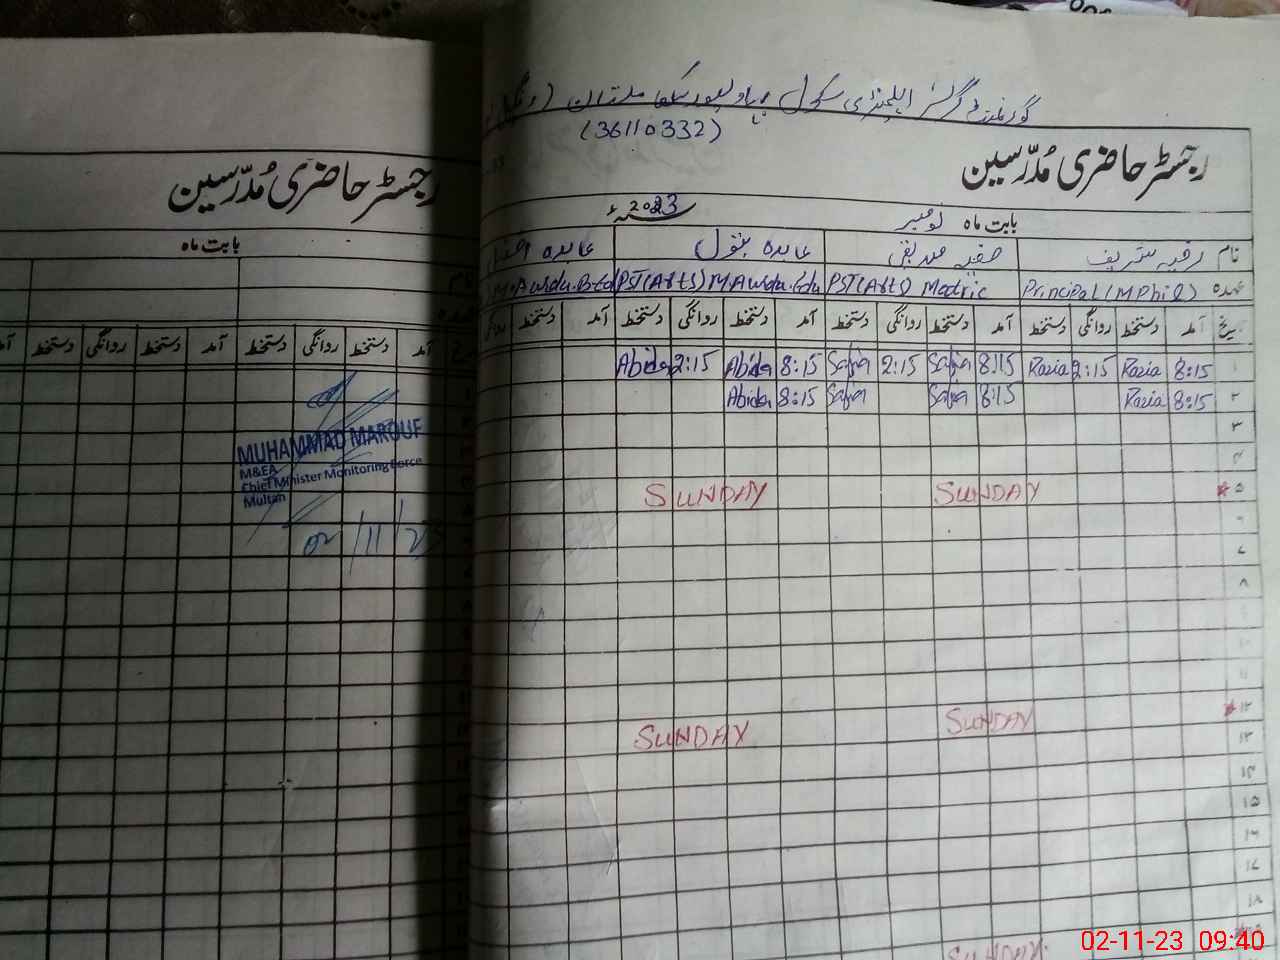 گورنمنٹ گرلز ایلیمنٹری سکول بہاولپور سکھا ملتان
(36110332)
رجسٹر حاضری مُدرّسین
بابت ماہ نومبر سنہ 2023ء
نام رضیہ شریف صفیہ صدیقی عابدہ بتول عابدہ
عہدہ Principal (M Phil) PST(Arts) Matric PST(Arts) M.A Urdu. Edu M.A Urdu. B-Ed
تاریخ آمد دستخط روانگی دستخط آمد دستخط روانگی دستخط آمد دستخط روانگی دستخط آمد دستخط روانگی
۱ 8:15 Razia 2:15 Razia 8:15 Safia 2:15 Safia 8:15 Abida 2:15 Abida
۲ 8:15 Razia 8:15 Safia Safia 8:15 Abida
۳
۴
۵ SUNDAY SUNDAY
۶
۷
۸
۹
۱۰
۱۱
۱۲ SUNDAY SUNDAY
۱۳
۱۴
۱۵
۱۶
۱۷
۱۸
SUNDAY
رجسٹر حاضری مُدرّسین
بابت ماہ
نام
عہدہ
تاریخ آمد دستخط روانگی دستخط آمد دستخط روانگی دستخط آمد
MUHAMMAD MAROUF
M&EA
Chief Minister Monitoring Force
Multan
02/11/23
02-11-23 09:40